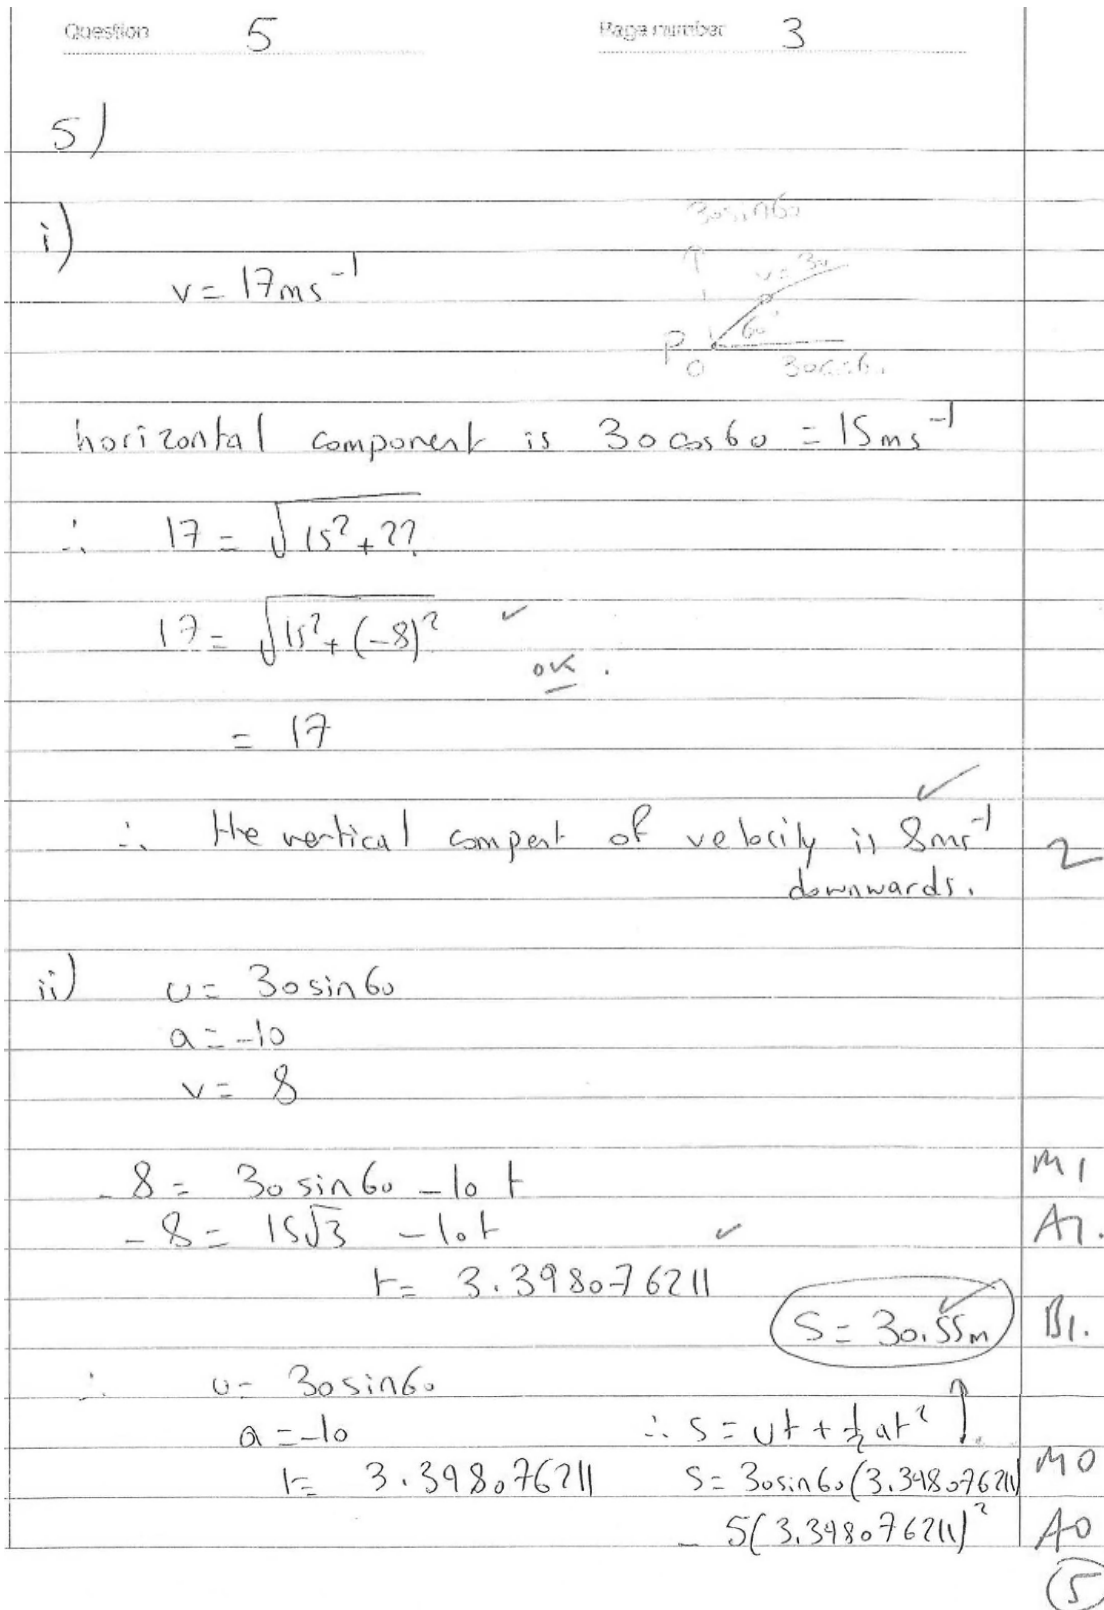 Question 5 Page number 3
5)
i)
30sin60
v = 17ms⁻¹
v = 30
60°
P
O
30cos60
horizontal component is 30cos60 = 15ms⁻¹
∴ 17 = √15²+??
17 = √15²+(-8)² ✓
OK.
= 17
✓
∴ the vertical compent of velocity is 8ms⁻¹ 2
downwards.
ii) u = 30sin60
a = -10
v = 8
-8 = 30sin60 - 10t M1
-8 = 15√3 - 10t ✓ A1.
t = 3.398076211
S = 30.55m ✓ B1.
∴ u = 30sin60
a = -10 ∴ s = ut + ½at² ↑
t = 3.398076211 s = 30sin60(3.398076211) M0
- 5(3.398076211)² A0
5